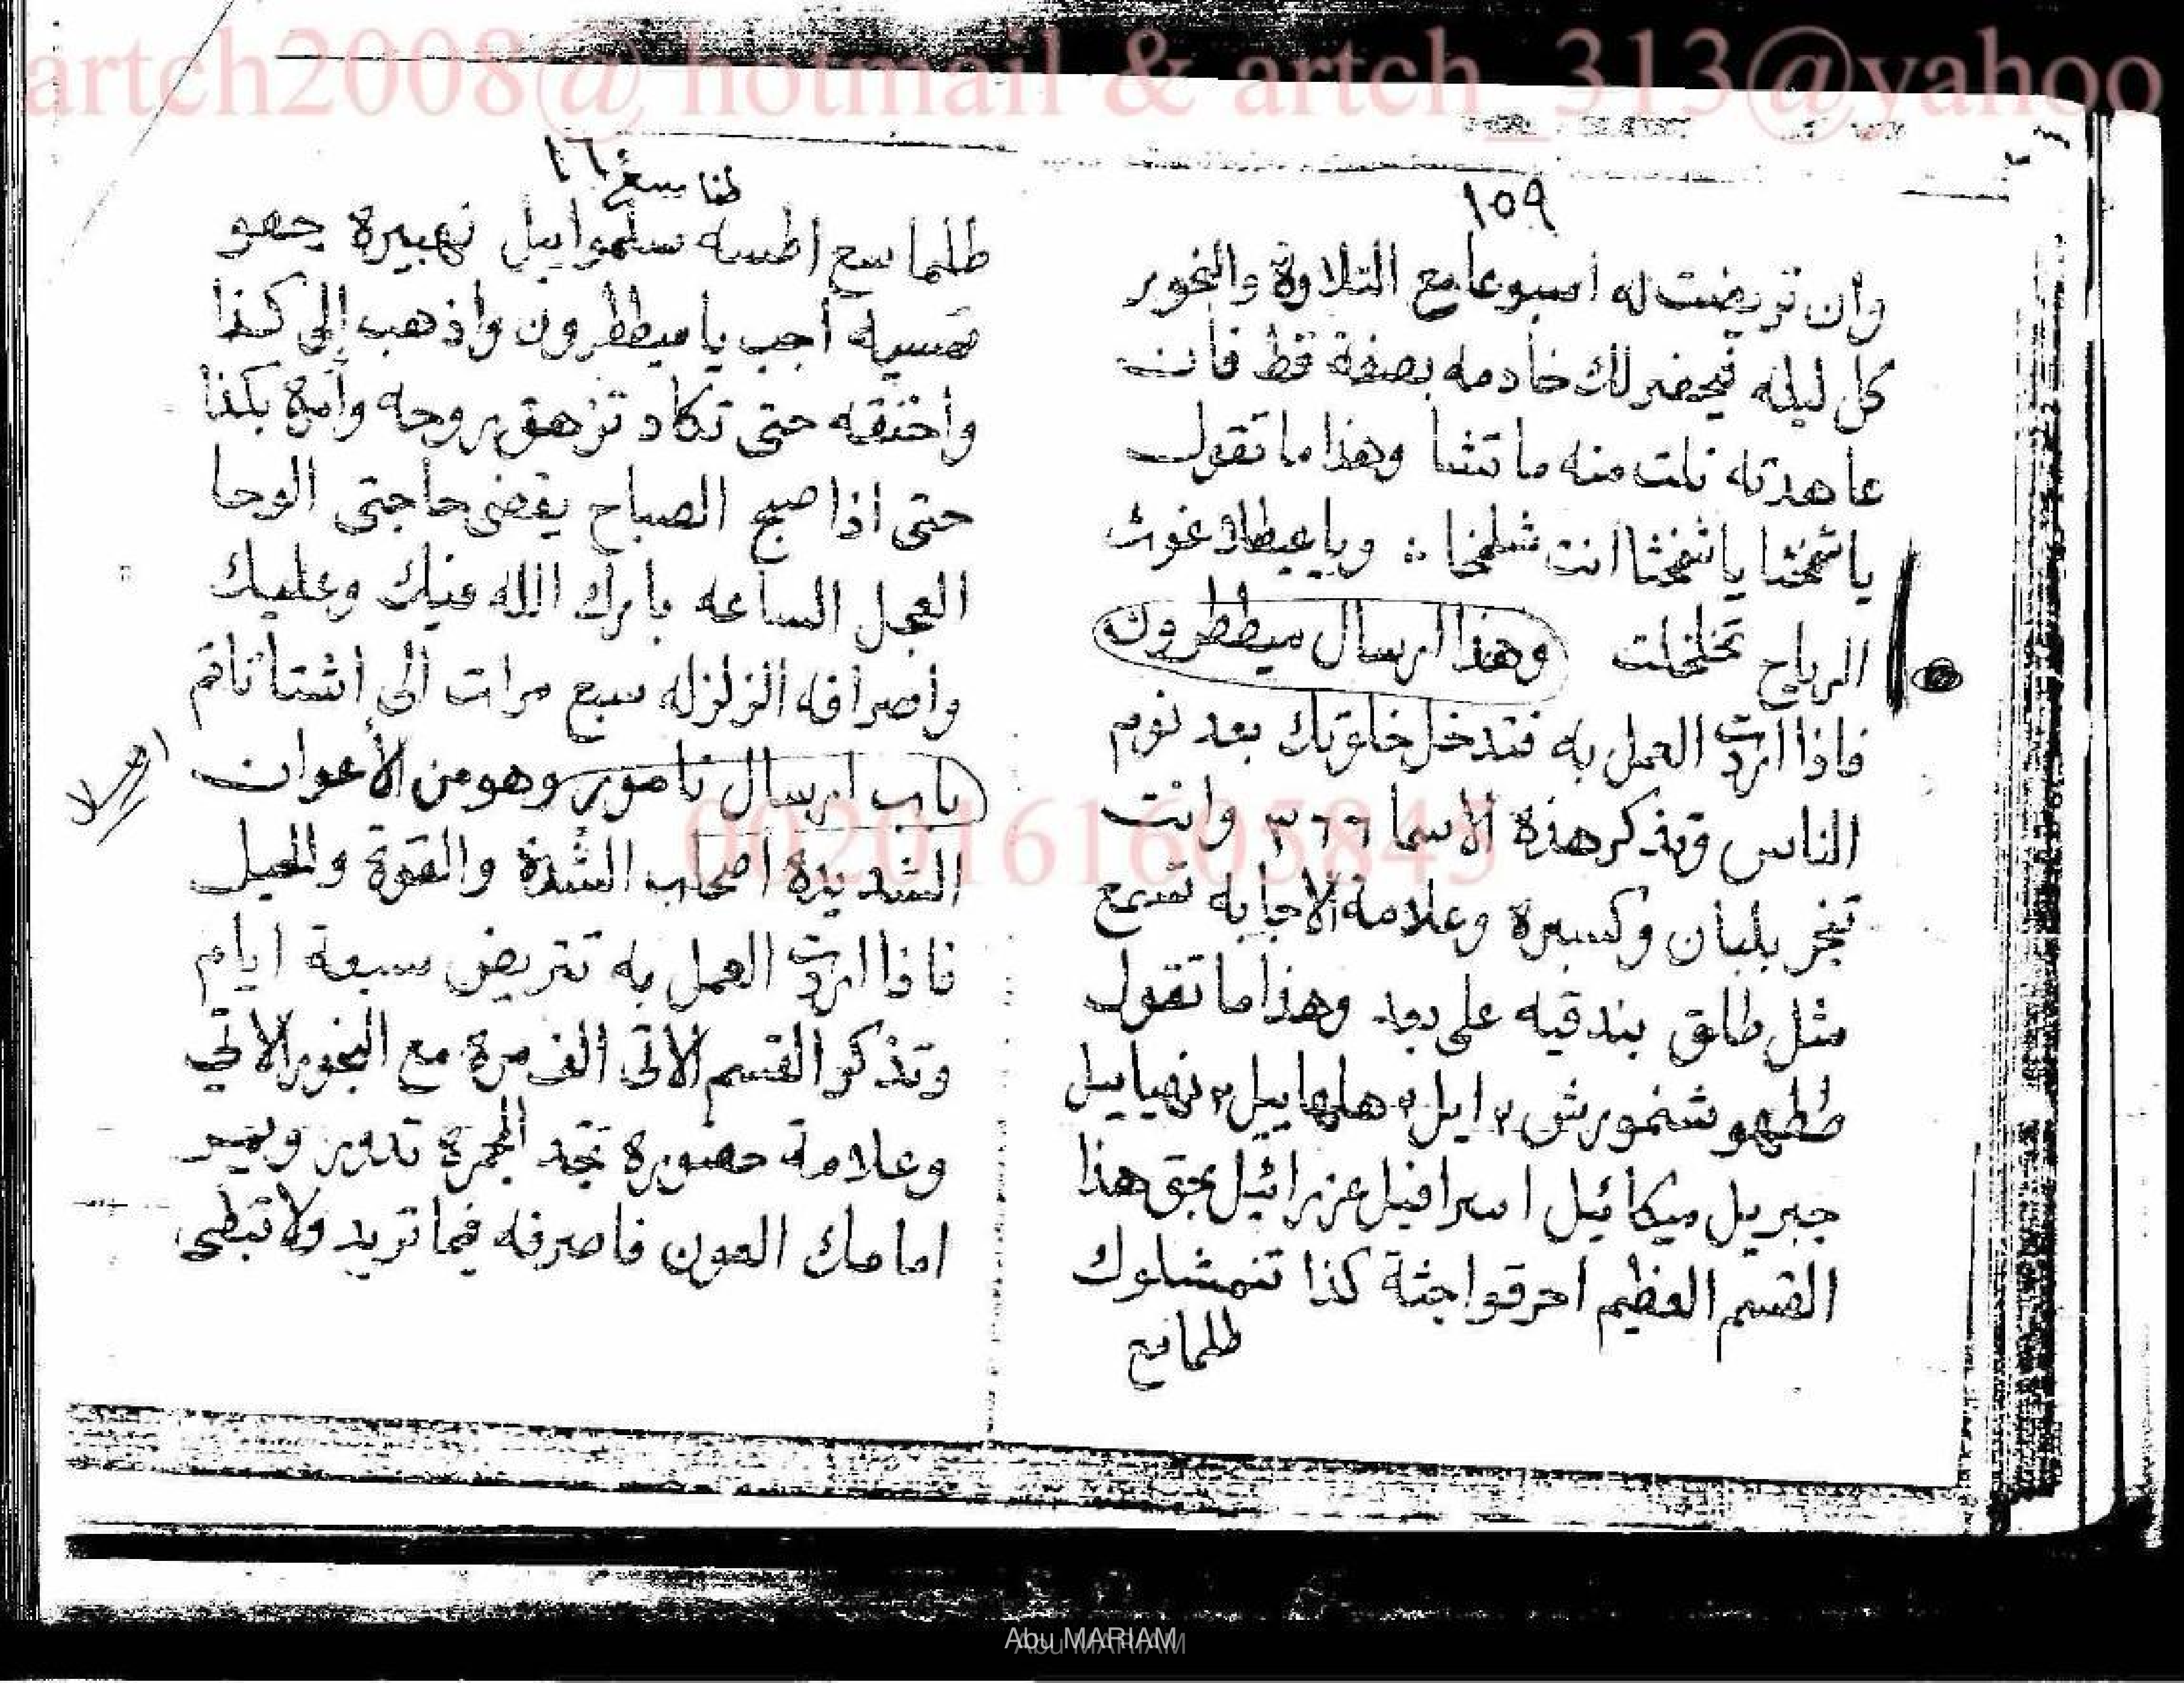 artch2008@ hotmail & artch_313@yahoo
١٥٩
وان تريضت له اسبوعا مع التلاوة والبخور
كل ليله فيحضر لك خادمه بصفة قط فان
عاهدته نلت منه ما تشا وهذا ما تقول
يا شمخثا يا انت شلمخا : ويا عيطلا غوث
الرياح تخلخلت وهذا ارسال ميططرون
فاذا اردت العمل به فتدخل خلوتك بعد نوم
الناس وتذكر هذه الاسما ٣٦٦ وانت
تبخر بلبان وكسبرة وعلامة الاجابه تسمع
مثل طلق بندقيه على بعد وهذا ما تقول
ططهو شمخورش ٢ ايل ٢ هلهاييل ٢ نهياييل
جبريل ميكائيل اسرافيل عزرائيل بحق هذا
القسم العظيم احرقوا جثة كذا تنمشلوك
طلما
١٦
طلما سع اطسه سلموابيل نهبيرة جهو
اجب يا ميططرون واذهب إلى كذا
واخنقه حتى تكاد تزهق روحه وأمره بكذا
حتى اذا صبح الصباح يقضى حاجتى الوحا
العجل الساعه بارك الله فيك وعليك
وأصرافه الزلزله سبع مرات الى اشتاتاتم
باب ارسال نامور وهو من الأعوان
الشديده اصحاب الشدة والقوة والحيل
فاذا اردت العمل به تتريض سبعة ايام
وتذكر القسم الاتى الف مرة مع البخور الاتي
وعلامة حضوره تجد المجمرة تدور ويصير
امامك العون فاصرفه فيما تريد ولا تبطى
0020161605845
Abu MARIAM